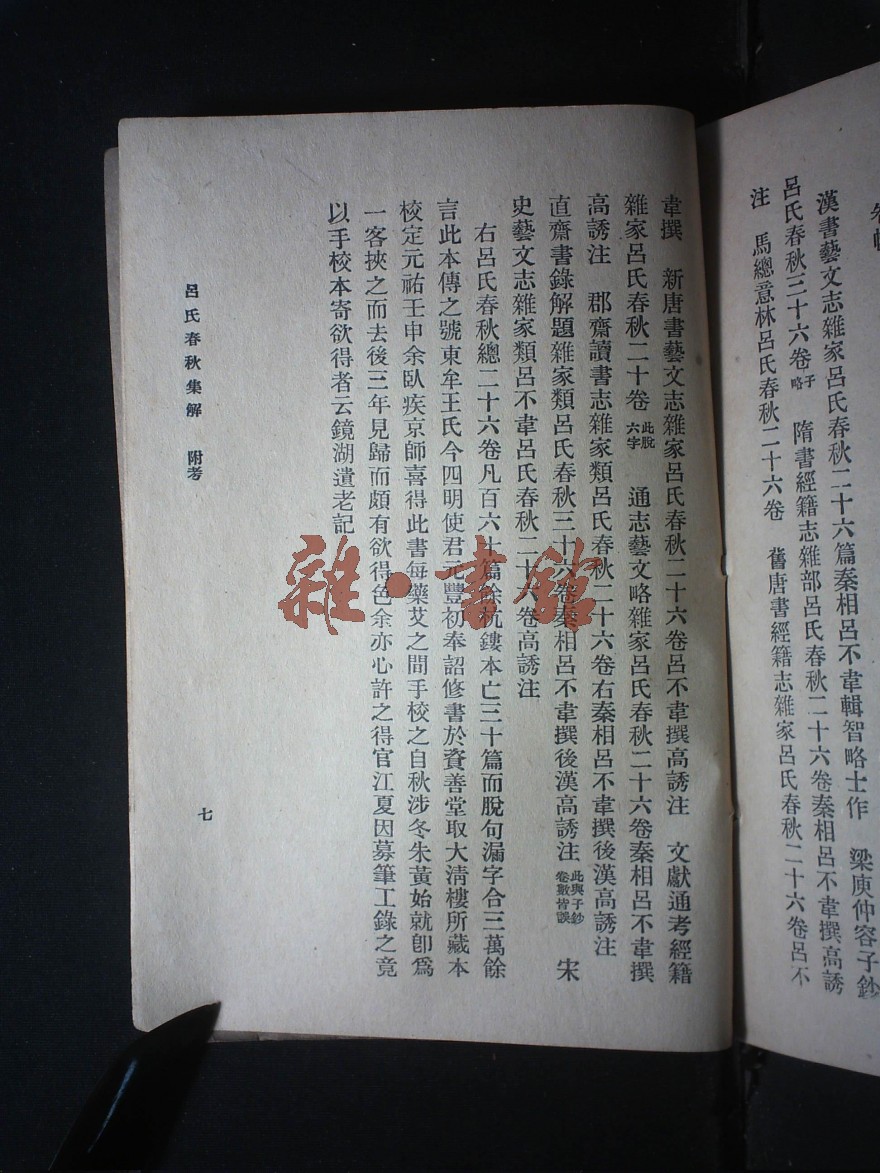 漢書藝文志雜家呂氏春秋二十六篇秦相呂不韋輯智略士作　梁庾仲容子鈔
呂氏春秋三十六卷子略　隋書經籍志雜部呂氏春秋二十六卷秦相呂不韋撰高誘
注　馬總意林呂氏春秋二十六卷　舊唐書經籍志雜家呂氏春秋二十六卷呂不
韋撰　新唐書藝文志雜家呂氏春秋二十六卷呂不韋撰高誘注　文獻通考經籍
雜家呂氏春秋二十卷此脫六字　通志藝文略雜家呂氏春秋二十六卷秦相呂不韋撰
高誘注　郡齋讀書志雜家類呂氏春秋二十六卷右秦相呂不韋撰後漢高誘注
直齋書錄解題雜家類呂氏春秋三十六卷秦相呂不韋撰後漢高誘注此與子鈔卷數皆誤　宋
史藝文志雜家類呂不韋呂氏春秋二十六卷高誘注
右呂氏春秋總二十六卷凡百六十篇餘杭鏤本亡三十篇而脫句漏字合三萬餘
言此本傳之號東牟王氏今四明使君元豐初奉詔修書於資善堂取大淸樓所藏本
校定元祐壬申余臥疾京師喜得此書每藥艾之間手校之自秋涉冬朱黃始就卽爲
一客挾之而去後三年見歸而頗有欲得色余亦心許之得官江夏因募筆工錄之竟
以手校本寄欲得者云鏡湖遺老記
呂氏春秋集解　附考
七
雜·書館